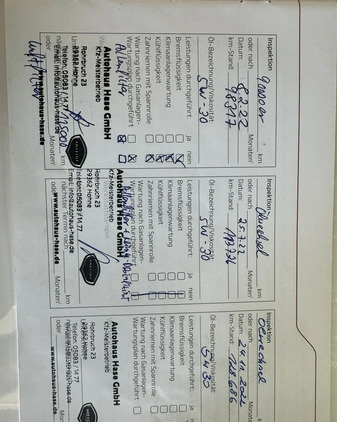 Inspektion
90000er km
oder nach Monaten/
Datum: 8.2.22
km-Stand: 98917
Öl-Bezeichnung/Viskosität:
5W-30
Leistungen durchgeführt: ja nein
Bremsflüssigkeit
Klimaanlagenwartung
Kühlflüssigkeit
Zahnriemen mit Spannrolle
Wartung nach Gasanlagen-
Wartungsplan durchgeführt
Pollenfilter
Autohaus Hase GmbH
Kfz-Meisterbetrieb
Rohrbruch 23
29362 Hohne
Telefon: 05083 / 14 77
115000
www.autohaus-hase.de
oder Monaten/
Luftfilter
Inspektion
Ölwechsel km
oder nach Monaten/
Datum: 25.7.22
km-Stand:
Öl-Bezeichnung/Viskosität:
5W-30
Leistungen durchgeführt: ja nein
Bremsflüssigkeit
Klimaanlagenwartung
Kühlflüssigkeit
Zahnriemen mit Spannrolle
Wartung nach Gasanlagen-
Wartungsplan durchgeführt
Autohaus Hase GmbH
Kfz-Meisterbetrieb
Rohrbruch 23
29362 Hohne
Telefon: 05083 / 14 77
Email: info@autohaus-hase.de
nächster Termin nach km
oder Monaten/
www.autohaus-hase.de
Inspektion
Ölwechsel km
oder nach Monaten/
Datum: 24.11.2022
km-Stand: 128686
Öl-Bezeichnung/Viskosität:
5W30
Leistungen durchgeführt: ja nein
Bremsflüssigkeit
Klimaanlagenwartung
Kühlflüssigkeit
Zahnriemen mit Spannrolle
Wartung nach Gasanlagen-
Wartungsplan durchgeführt
Autohaus Hase GmbH
Kfz-Meisterbetrieb
Rohrbruch 23
29362 Hohne
Telefon: 05083 / 14 77
km
Monaten/
www.autohaus-hase.de